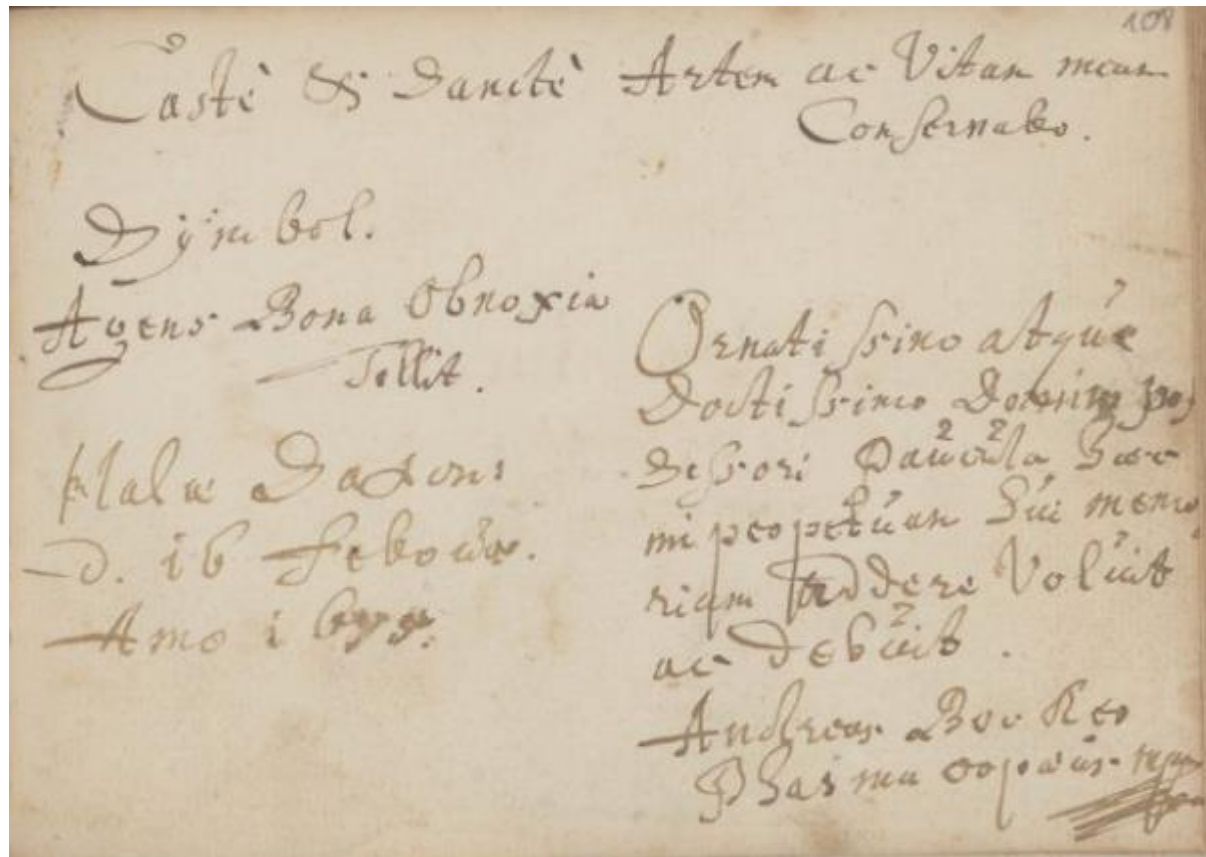 108
Castè & Sanctè Artem ac Vitam meam
Conservabo.
Symbol.
Agens Bona Obnoxia
Tollit.
Halæ Saxon:
d. 16 Febr
Anno 16
Ornatissimo atque
Doctissimo Domino pos
sessori Paucula haec
in perpetuam Sui memo
riam addere Voluit
ac debuit.
Andreas